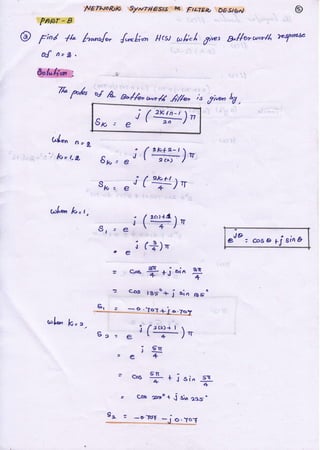 NETWORK SYNTHESIS & FILTER DESIGN ⑤
PART - B
③ Find the transfer function H(s) which gives Butterworth response
of n = 2.
Solution:
The poles of the Butterworth filter is given by,
S_K = e^{j((2K+n-1)/2n)π}
when n = 2
∴ K = 1, 2 S_K = e^{j((2K+2-1)/2(2))π}
S_K = e^{j((2K+1)/4)π}
when K = 1,
S_1 = e^{j((2(1)+1)/4)π}
= e^{j(3/4)π}
e^{jθ} = cos θ + j sin θ
= cos 3π/4 + j sin 3π/4
= cos 135° + j sin 135°
S_1 = -0.707 + j0.707
when K = 2,
S_2 = e^{j((2(2)+1)/4)π}
= e^{j 5π/4}
= cos 5π/4 + j sin 5π/4
= cos 225° + j sin 225°
S_2 = -0.707 - j0.707